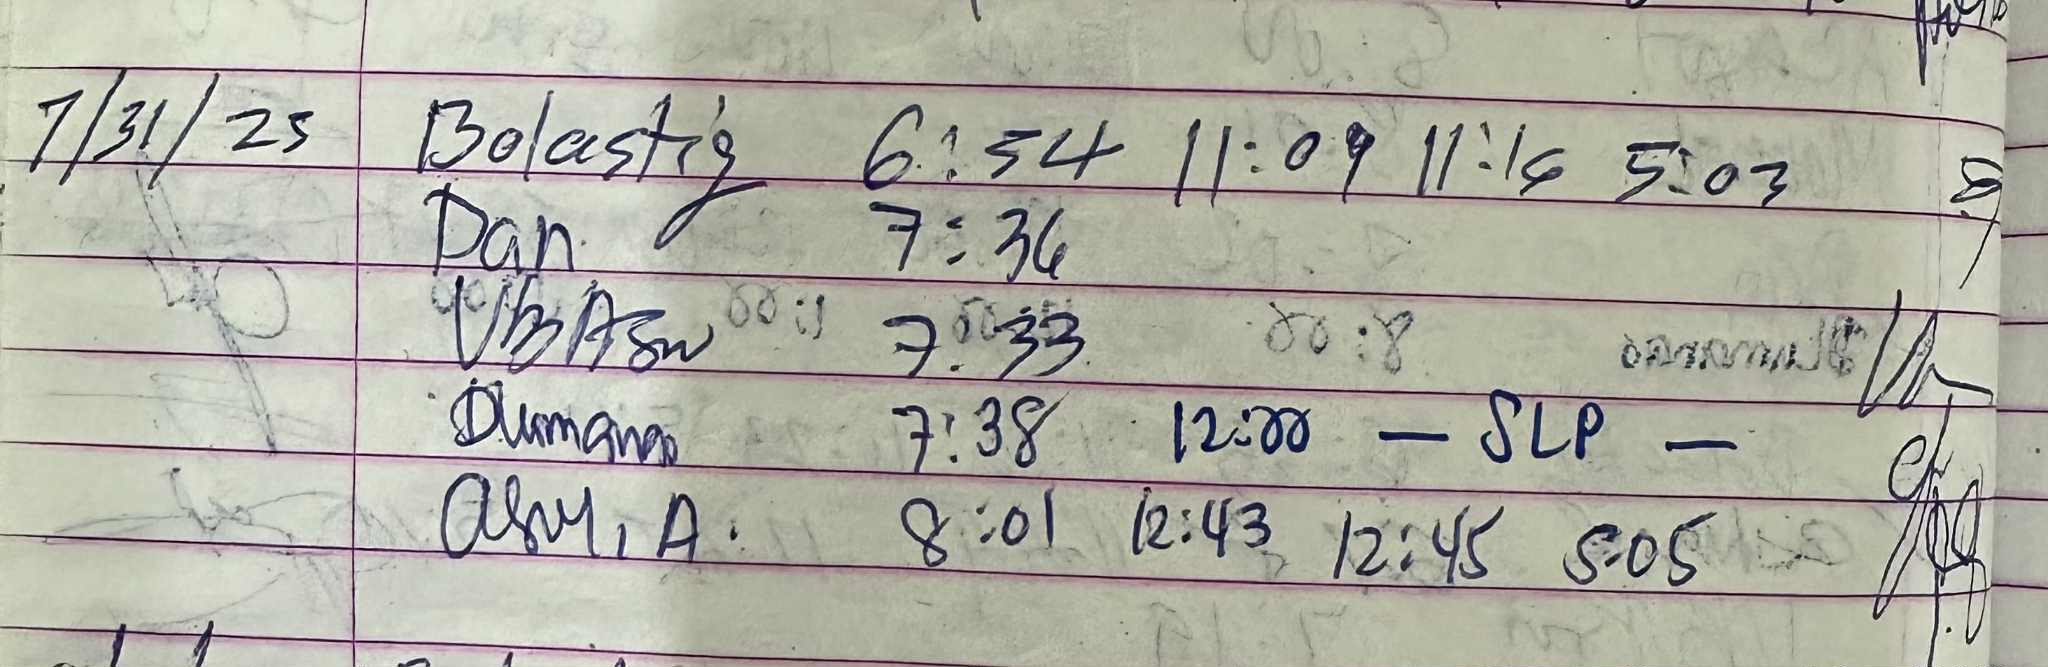 7/31/25 Bolastig 6:54 11:09 11:16 5:03
Dan 7:36
7:33
Dumanao 7:38 12:00 — SLP —
A. 8:01 12:43 12:45 5:05